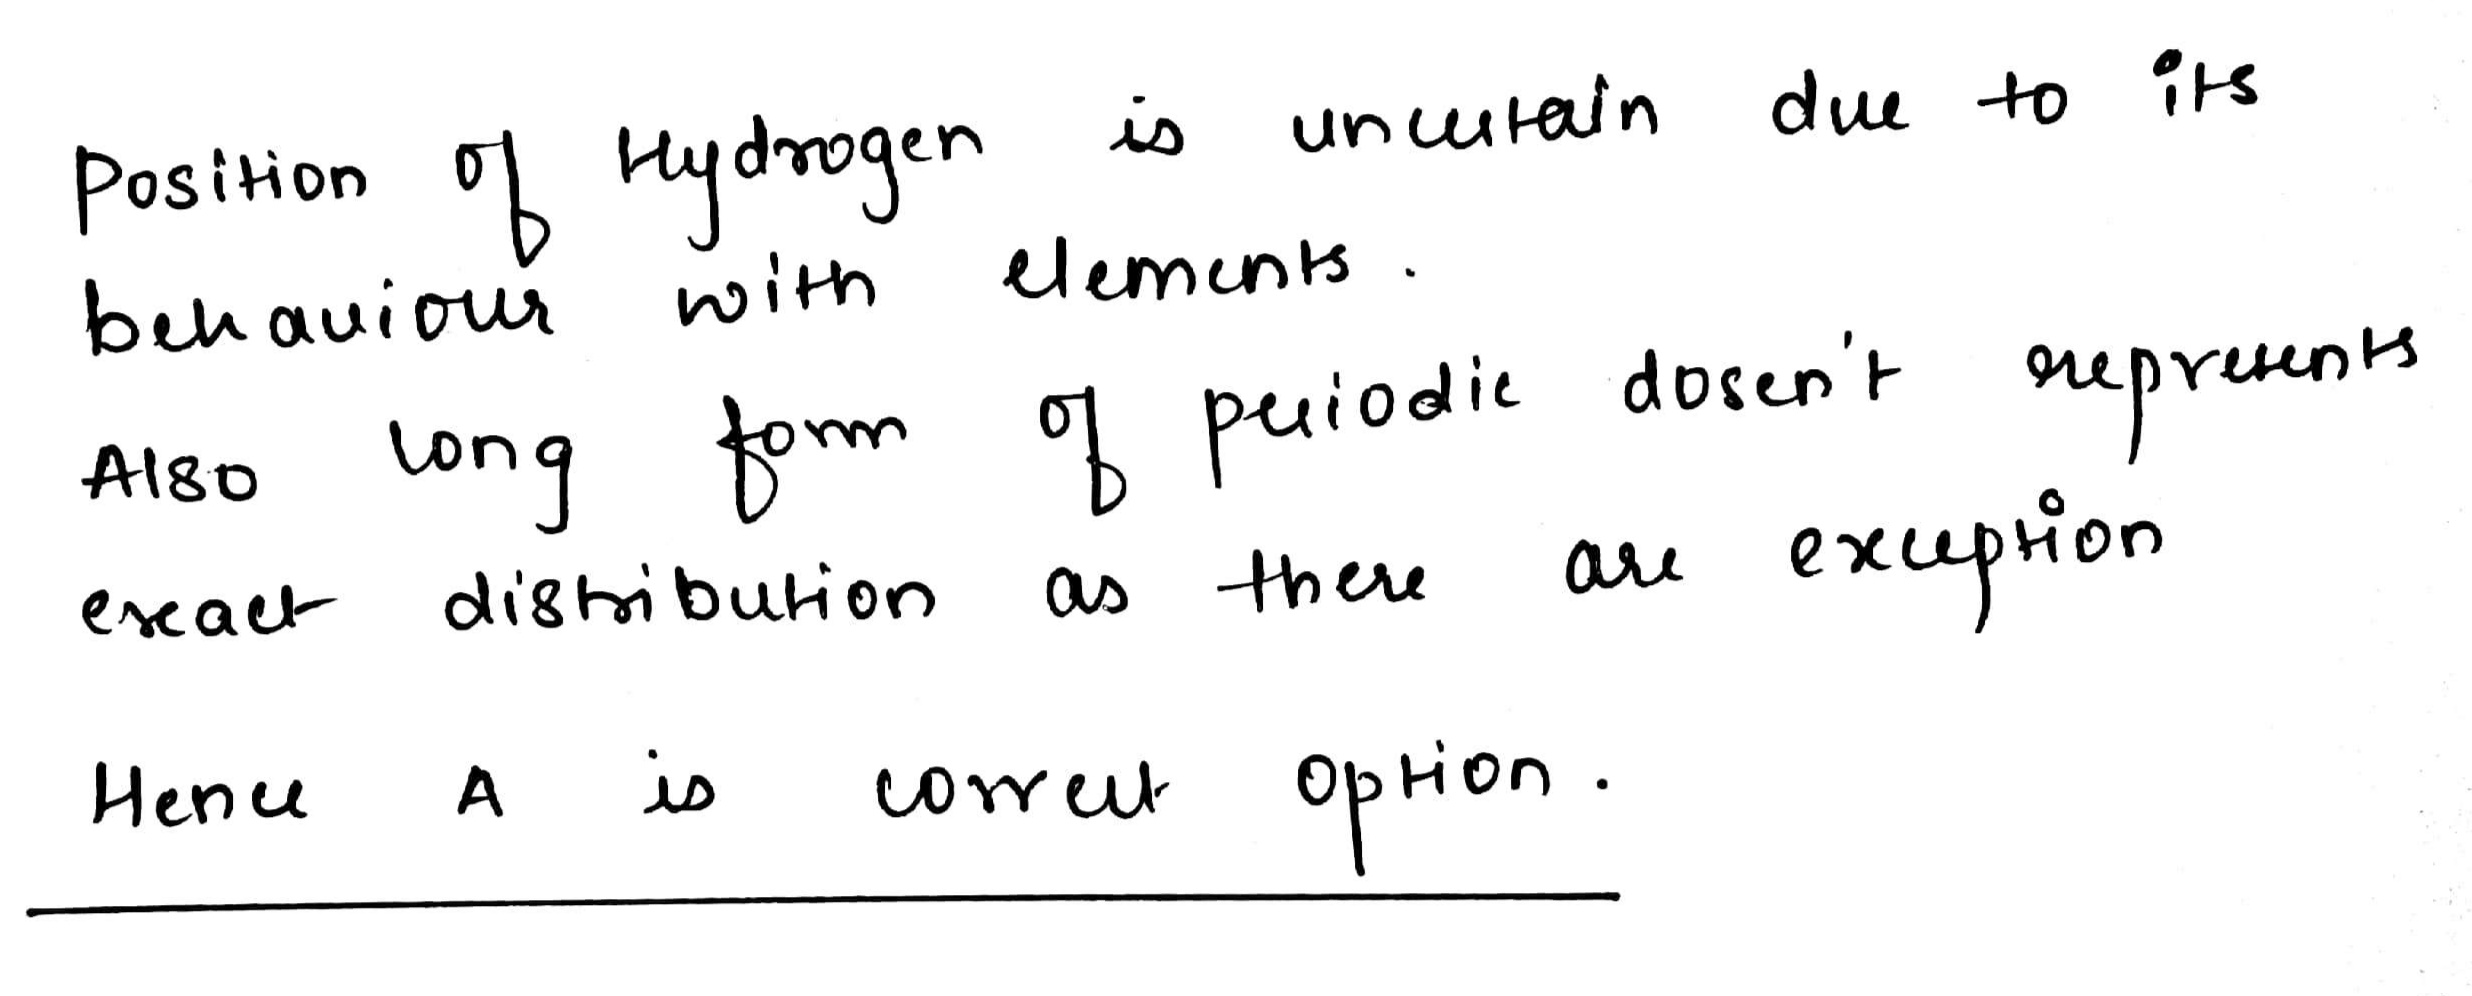 Position of Hydrogen is uncertain due to its
behaviour with elements.
Also long form of periodic dosen't represents
exact distribution as there are exception
Hence A is correct option.